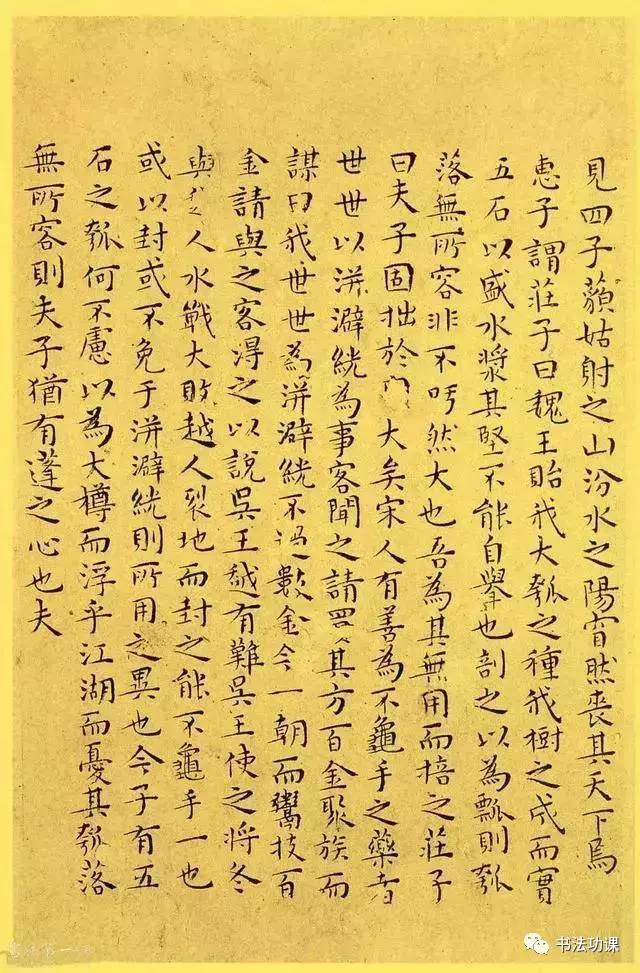 見四子藐姑射之山汾水之陽窅然喪其天下焉
惠子謂莊子曰魏王貽我大瓠之種我樹之成而實
五石以盛水漿其堅不能自舉也剖之以為瓢則瓠
落無所容非不呺然大也吾為其無用而掊之莊子
曰夫子固拙於大矣宋人有善為不龜手之藥者
世世以洴澼絖為事客聞之請買其方百金聚族而
謀曰我世世為洴澼絖不過數金今一朝而鬻技百
金請與之客得之以說吳王越有難吳王使之將冬
與越人水戰大敗越人裂地而封之能不龜手一也
或以封或不免于洴澼絖則所用之異也今子有五
石之瓠何不慮以為大樽而浮乎江湖而憂其瓠落
無所容則夫子猶有蓬之心也夫
书法功课